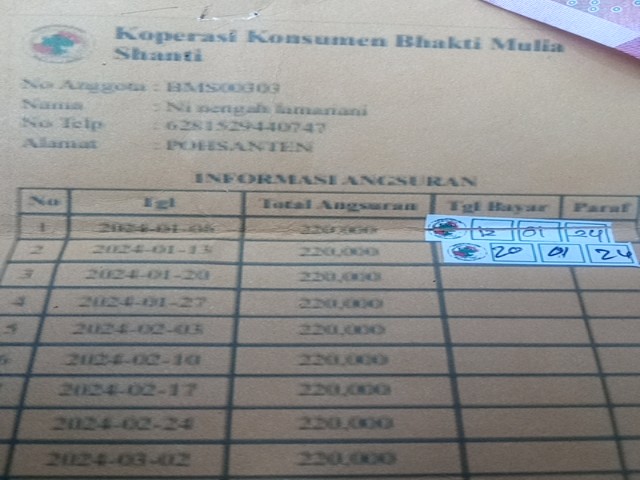 Koperasi Konsumen Bhakti Mulia
Shanti
No Anggota : BMS00303
Nama : Ni nengah lamariani
No Telp : 6281529440747
Alamat : POHSANTEN
INFORMASI ANGSURAN
No Tgl Total Angsuran Tgl Bayar Paraf
1 2024-01-06 220,000 12 01 24
2 2024-01-13 220,000 20 01 24
3 2024-01-20 220,000
4 2024-01-27 220,000
5 2024-02-03 220,000
6 2024-02-10 220,000
2024-02-17 220,000
2024-02-24 220,000
2024-03-02 220,000